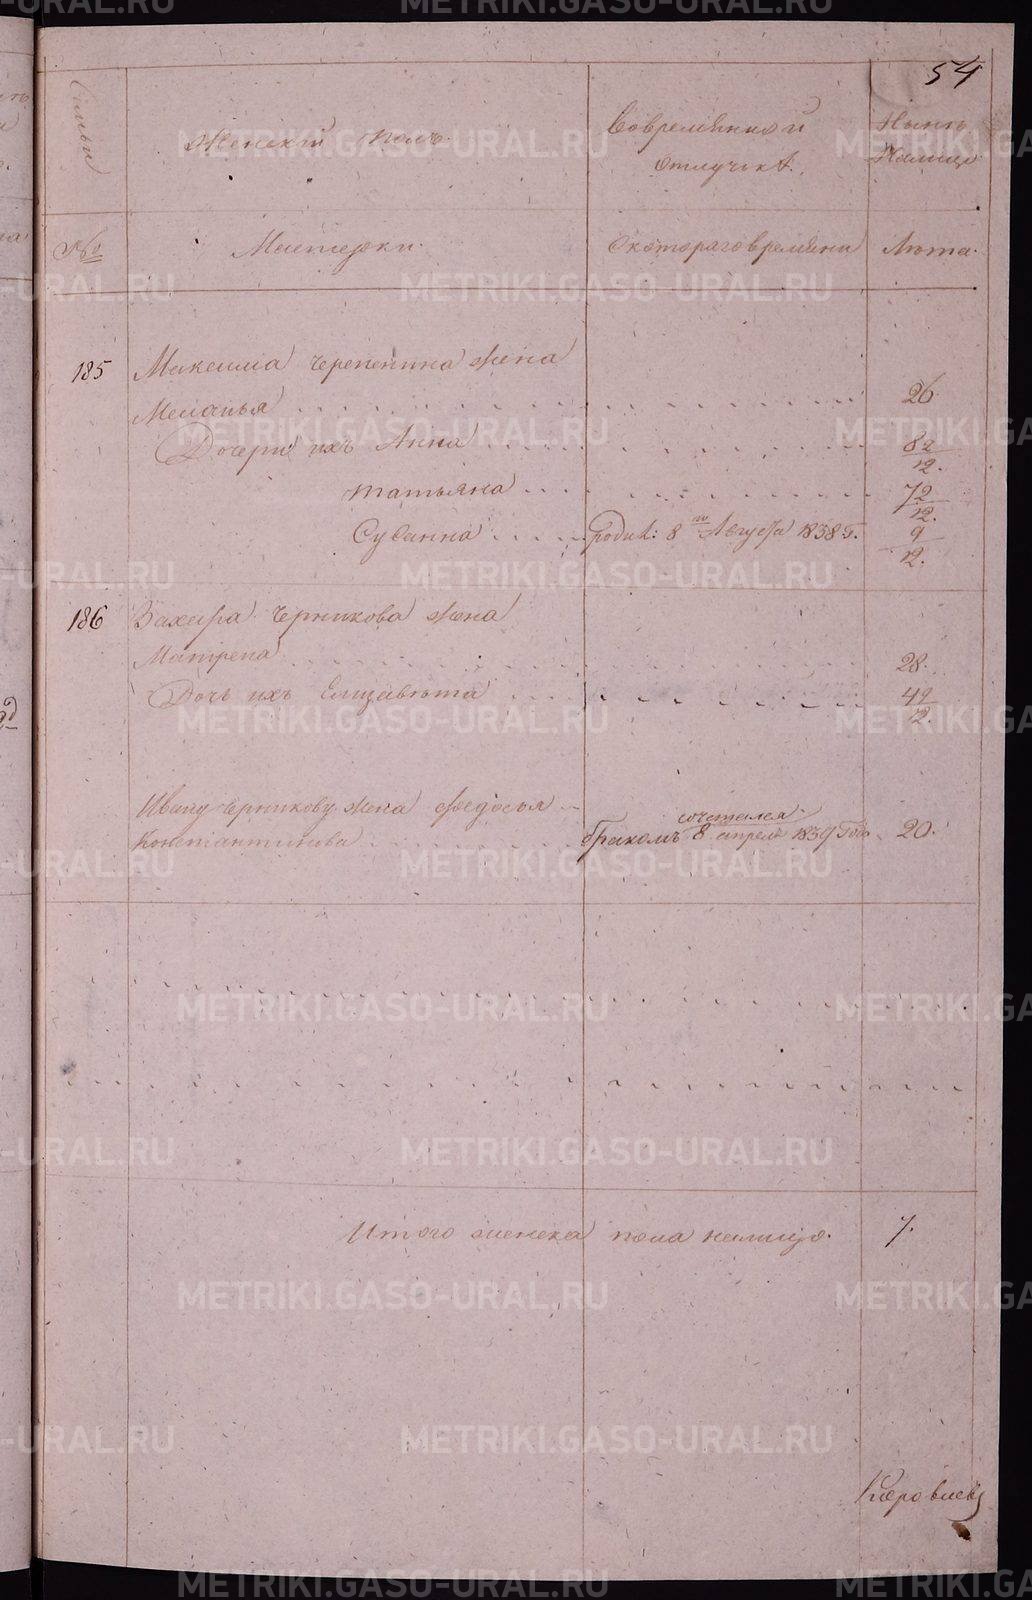 54
Семьи
Женский полъ.
Вовременной
отлучкѣ.
Нынѣ
Налицо
№
Мастерки.
Скотораговремени
Лѣта.
185 Максима Черепенина жена
Меланья 26.
Дочери ихъ Анна 8 2/12.
Татьяна 7 2/12.
Сусанна родил: 8го Августа 1838 г. 9/12.
186 Захара Черникова жена
Матрена 28.
Дочь ихъ Елизавѣта 4 9/12.
Ивану Черникову жена Федосья
Константинова
сочетался
бракомъ 8 апреля 1839 Года 20.
Итого женска пола налицо. 7.
METRIKI.GASO-URAL.RU